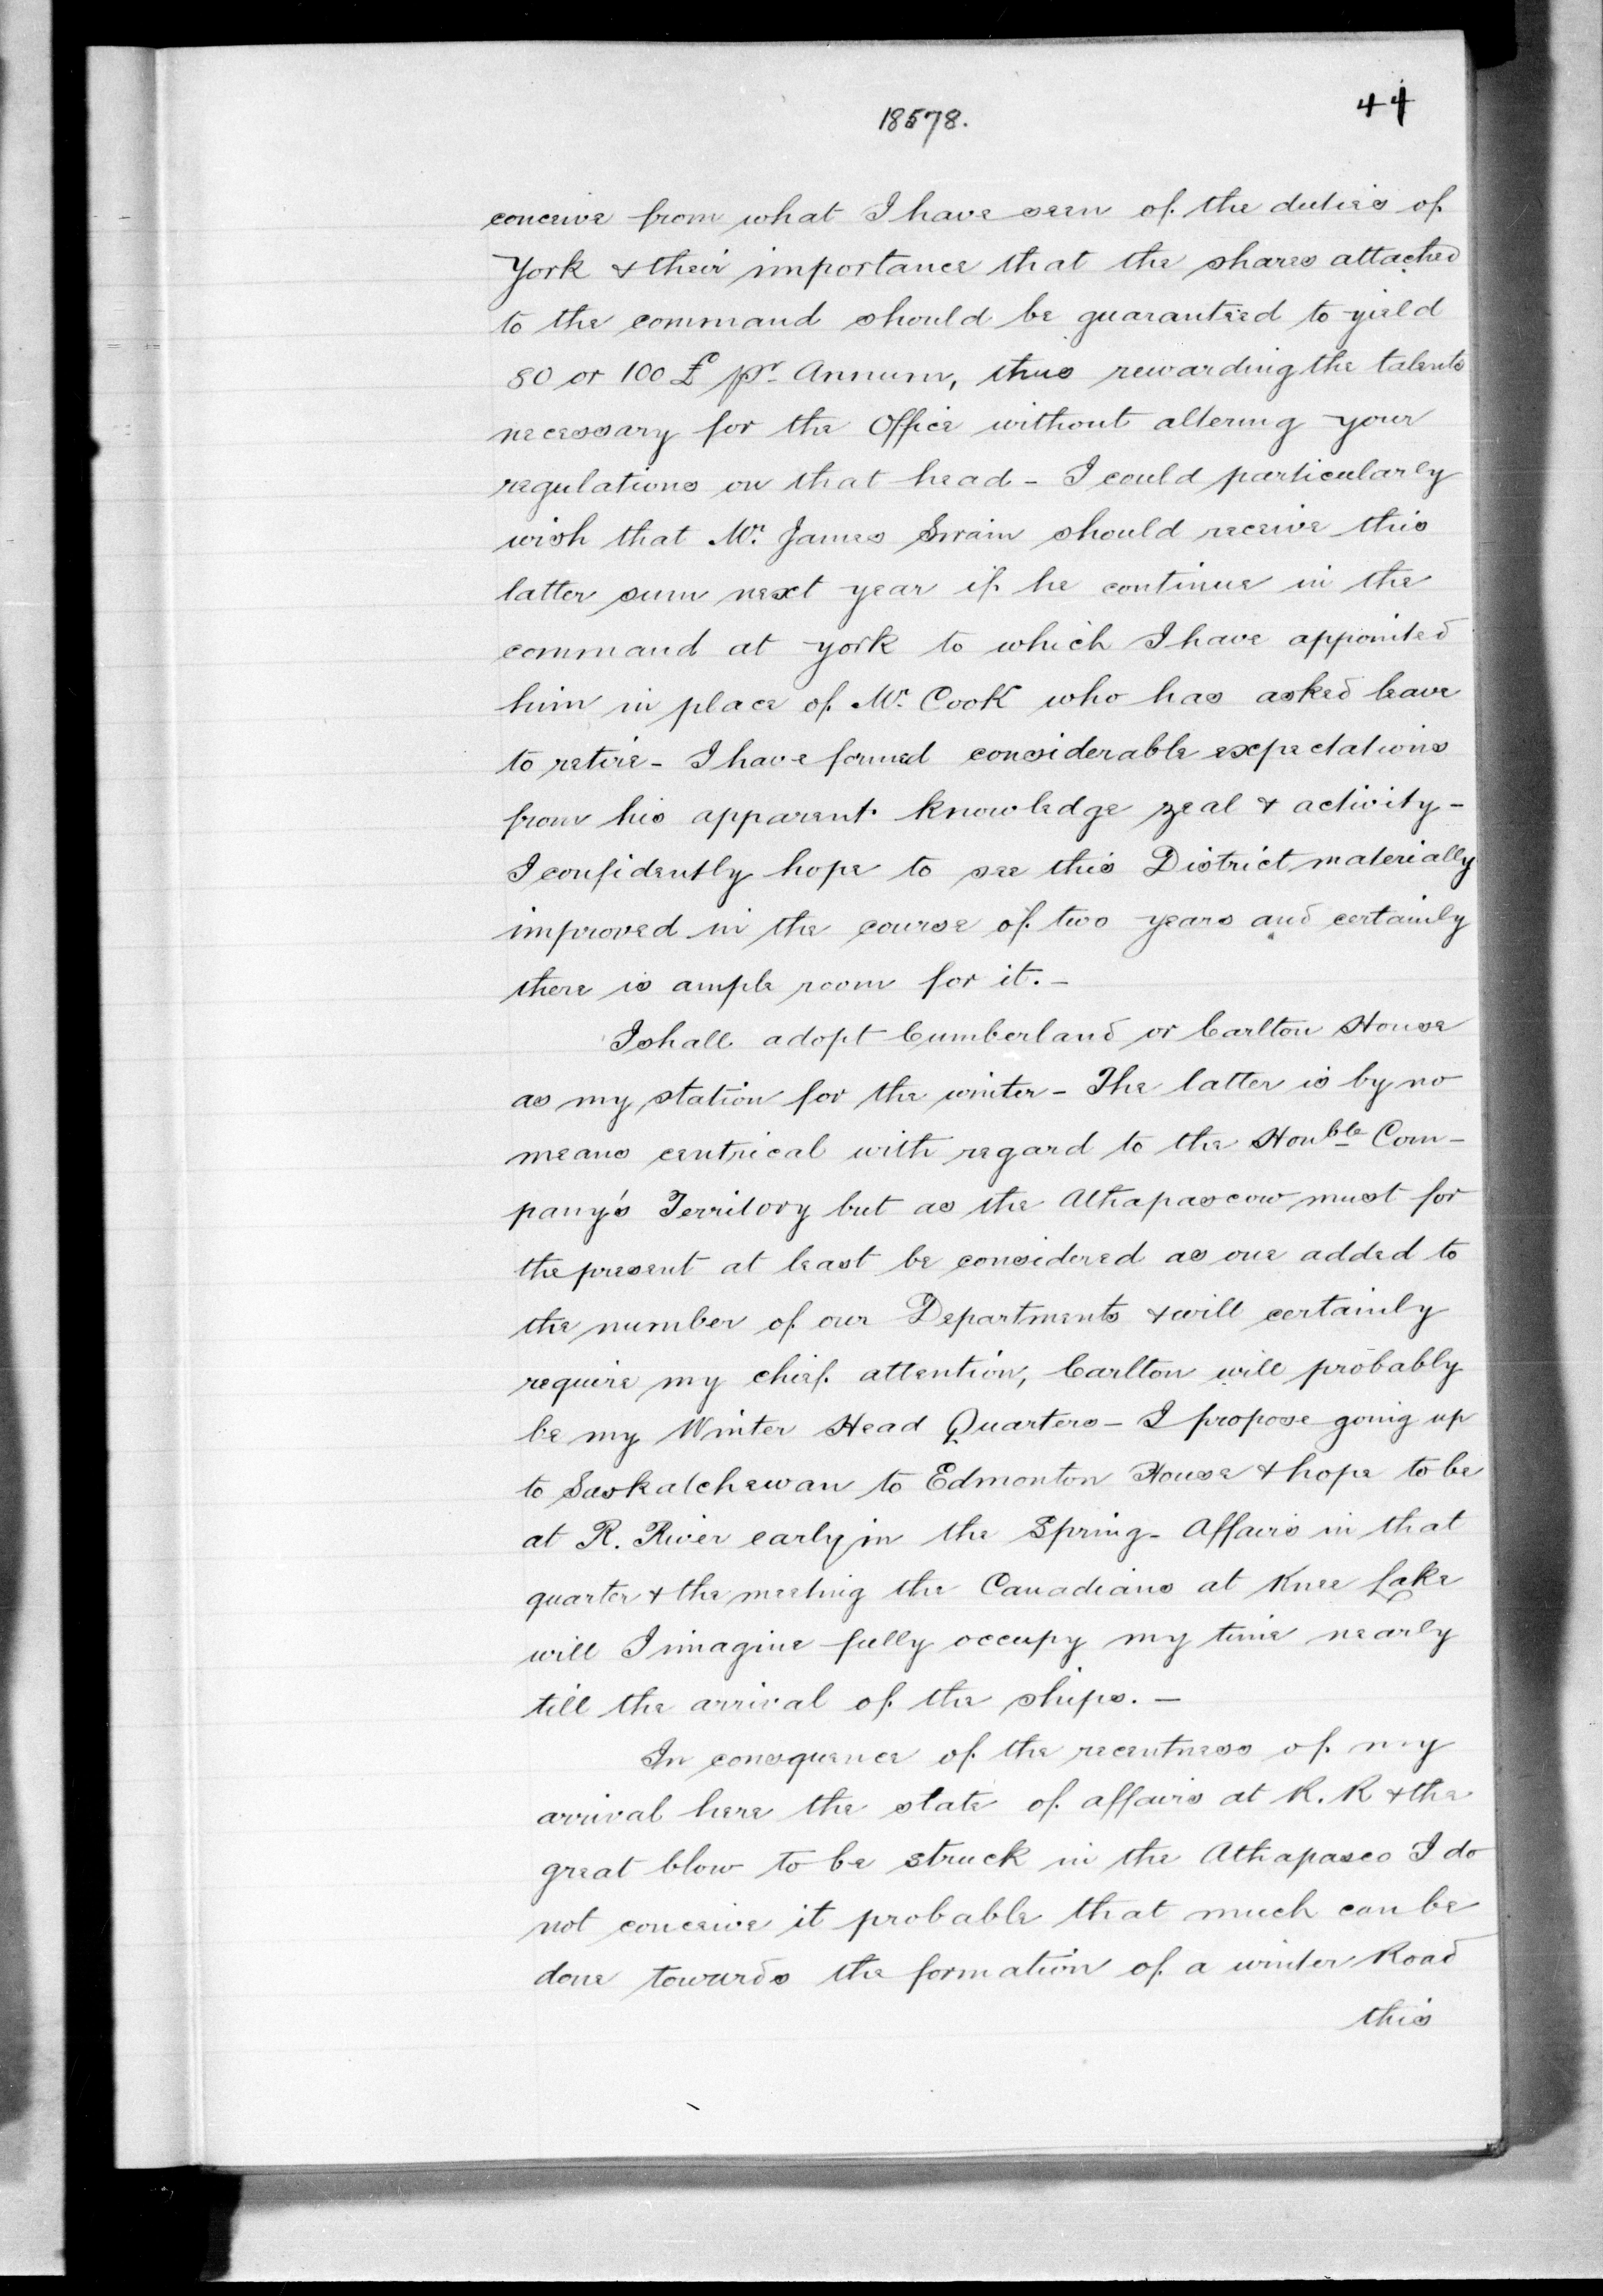 44
18578.
conceive from what I have seen of the duties of
York & their importance that the shares attached
to the command should be guaranteed to yield
80 or 100 £ pr. Annum, thus rewarding the talents
necessary for the Office without altering your
regulations on that head - I could particularly
wish that Mr. James Swain should receive this
latter sum next year if he continue in the
command at York to which I have appointed
him in place of Mr. Cook who has asked leave
to retire - I have formed considerable expectations
from his apparent knowledge zeal & activity -
I confidently hope to see this District materially
improved in the course of two years and certainly
there is ample room for it. -
I shall adopt Cumberland or Carlton House
as my station for the winter - The latter is by no
means centrical with regard to the Honble Com-
pany's Territory but as the Athapascow must for
the present at least be considered as one added to
the number of our Departments & will certainly
require my chief attention, Carlton will probably
be my Winter Head Quarters - I propose going up
to Saskatchewan to Edmonton House & hope to be
at R. River early in the Spring - Affairs in that
quarter & the meeting the Canadians at Knee Lake
will I imagine fully occupy my time nearly
till the arrival of the ships. -
In consquence of the recentness of my
arrival here the state of affairs at R. R & the
great blow to be struck in the Athapasco I do
not conceive it probable that much can be
done towards the formation of a winter Road
this